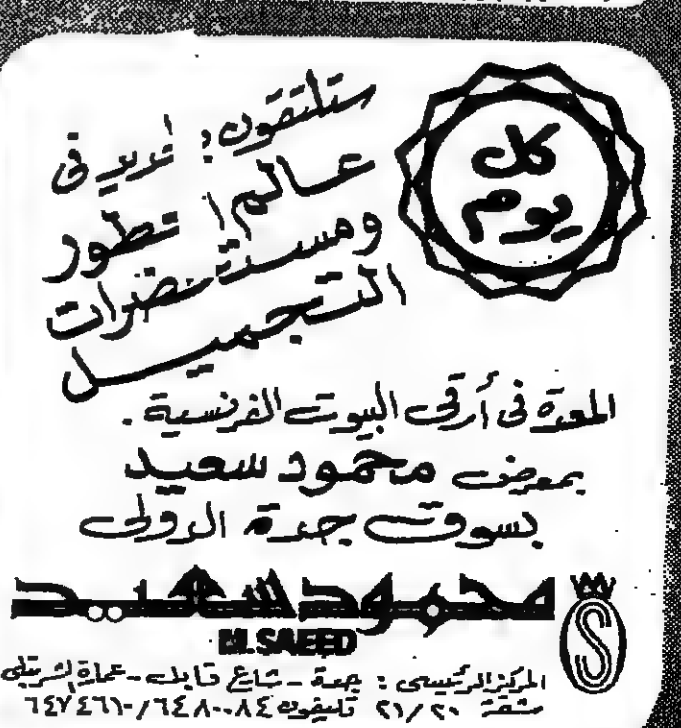 كل
يوم
ستلتقون: بجديد في
عالم العطور
ومستحضرات
التجميل
المعدة في أرقى البيوت الفرنسية.
بمعرض محمود سعيد
بسوق جدة الدولي
محمود سعيد
M.SAEED
المركز الرئيسي: جدة - شارع قابل - عمارة الشربتلي
شقة ٢١/٢٠ تليفون ٦٤٨٠٠٨٤/٦٤٧٤٦١٠